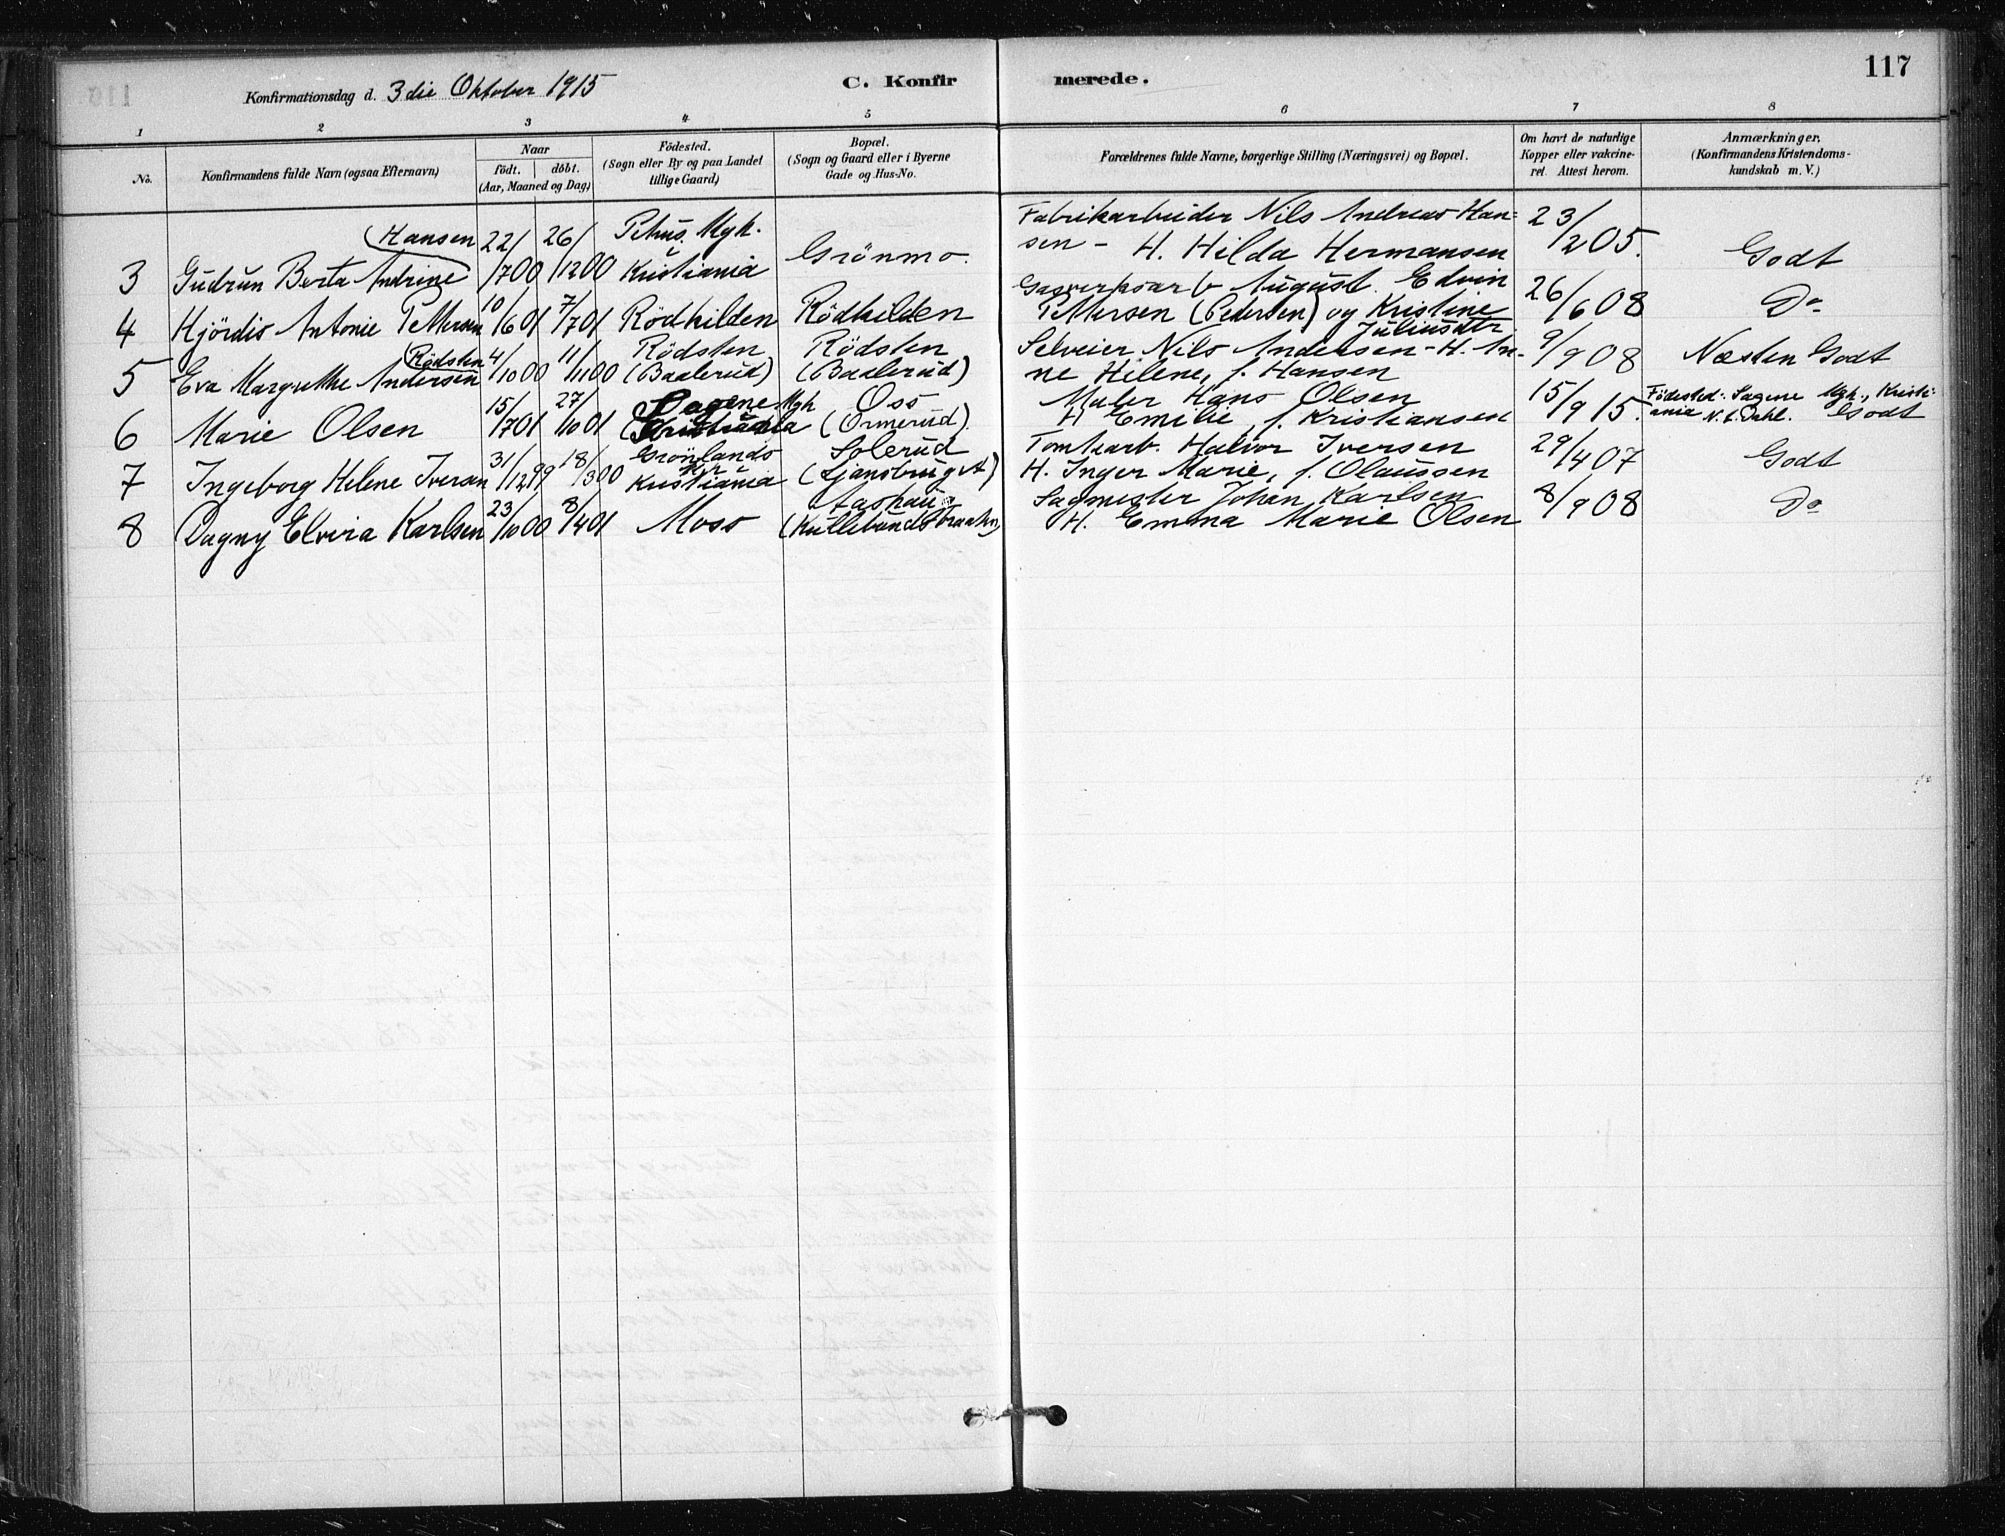 117
Konfirmationsdag d. 3die Oktober 1915
C. Konfirmerede.
1 2 3 4 5 6 7 8
No.
Konfirmandens fulde Navn (ogsaa Efternavn)
Naar
födt. döbt.
(Aar, Maaned og Dag)
Födested.
(Sogn eller By og paa Landet
tillige Gaard)
Bopæl.
(Sogn og Gaard eller i Byerne
Gade og Hus-No.
Forældrenes fulde Navne, borgerlige Stilling (Næringsvei) og Bopæl.
Om havt de naturlige
Kopper eller vakcine-
ret. Attest herom.
Anmærkninger.
(Konfirmandens Kristendoms-
kundskab m. V.)
3 Gudrun Berta Andrine (Hansen 22/700 26/1200 Petrus Mgh. i Kristiania Grönmo. Fabrikarbeider Nils Andreas Han-
sen - H. Hilda Hermansen 23/205. Godt
4 Hjördis Antonie Pettersen 10/601 7/701 Rödkilden Rödkilden August Edvin
Pettersen (Pedersen) og Kristine Juliusdtr 26/608 Do
5 Eva Margrethe Andersen (Rödsten 4/1000 11/1100 Rödsten (Baalerud) Rödsten (Baalerud) Selveier Nils Andersen - H. An-
ne Helene, f. Hansen 9/908 Næsten Godt
6 Marie Olsen 15/701 27/1001 Sagene Mgh Kristiania Oss (Ormerud). Maler Hans Olsen
H Emilie, f. Kristiansen 15/915. Födested: Sagene Mgh., Kristi-
ania N. L. Dahl. Godt
7 Ingeborg Helene Iversen 31/1299 18/300 Grönlands Kr. Kristiania Solerud (Ljansbruget) Tomtearb. Halvor Iversen
H. Inger Marie, f. Olaussen 29/407 Godt
8 Dagny Elvira Karlsen 23/1000 8/401 Moss Aashaug (Kullebundsbraaten) Sagmester Johan Karlsen
H. Emma Marie Olsen 8/908 Do